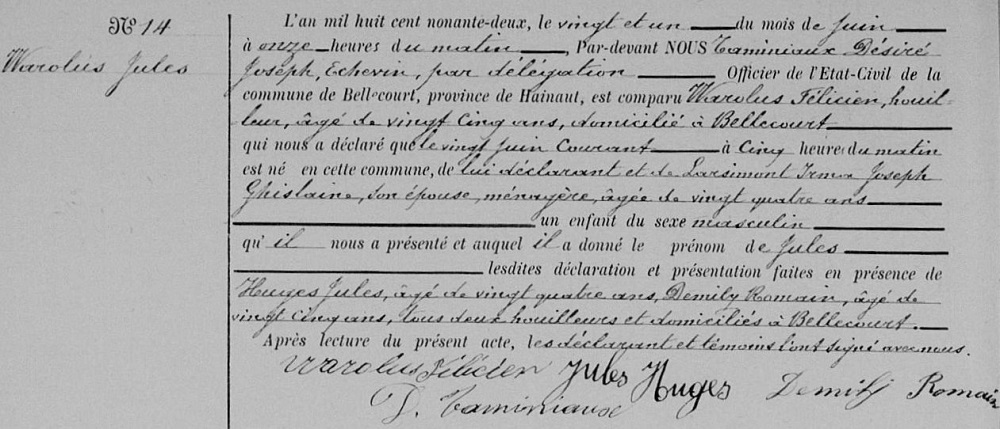 N° 14
Warolus Jules
L'an mil huit cent nonante-deux, le vingt et un du mois de Juin
à onze heures du matin, Par-devant NOUS Taminiaux Désiré
Joseph, Echevin, par délégation Officier de l'Etat-Civil de la
commune de Bellecourt, province de Hainaut, est comparu Warolus Félicien, houil-
leur, âgé de vingt cinq ans, domicilié à Bellecourt
qui nous a déclaré que le vingt Juin Courant à Cinq heures du matin
est né en cette commune, de lui déclarant et de Larsimont Irma Joseph
Ghislaine, son épouse, ménagère, âgée de vingt quatre ans
un enfant du sexe masculin
qu'il nous a présenté et auquel il a donné le prénom de Jules
lesdites déclaration et présentation faites en présence de
Huges Jules, âgé de vingt quatre ans, Demily Romain, âgé de
vingt cinq ans, tous deux houilleurs et domiciliés à Bellecourt.
Après lecture du présent acte, les déclarant et témoins l'ont signé avec nous.
Warolus Félicien Jules Huges Demily Romain
D. Taminiaux